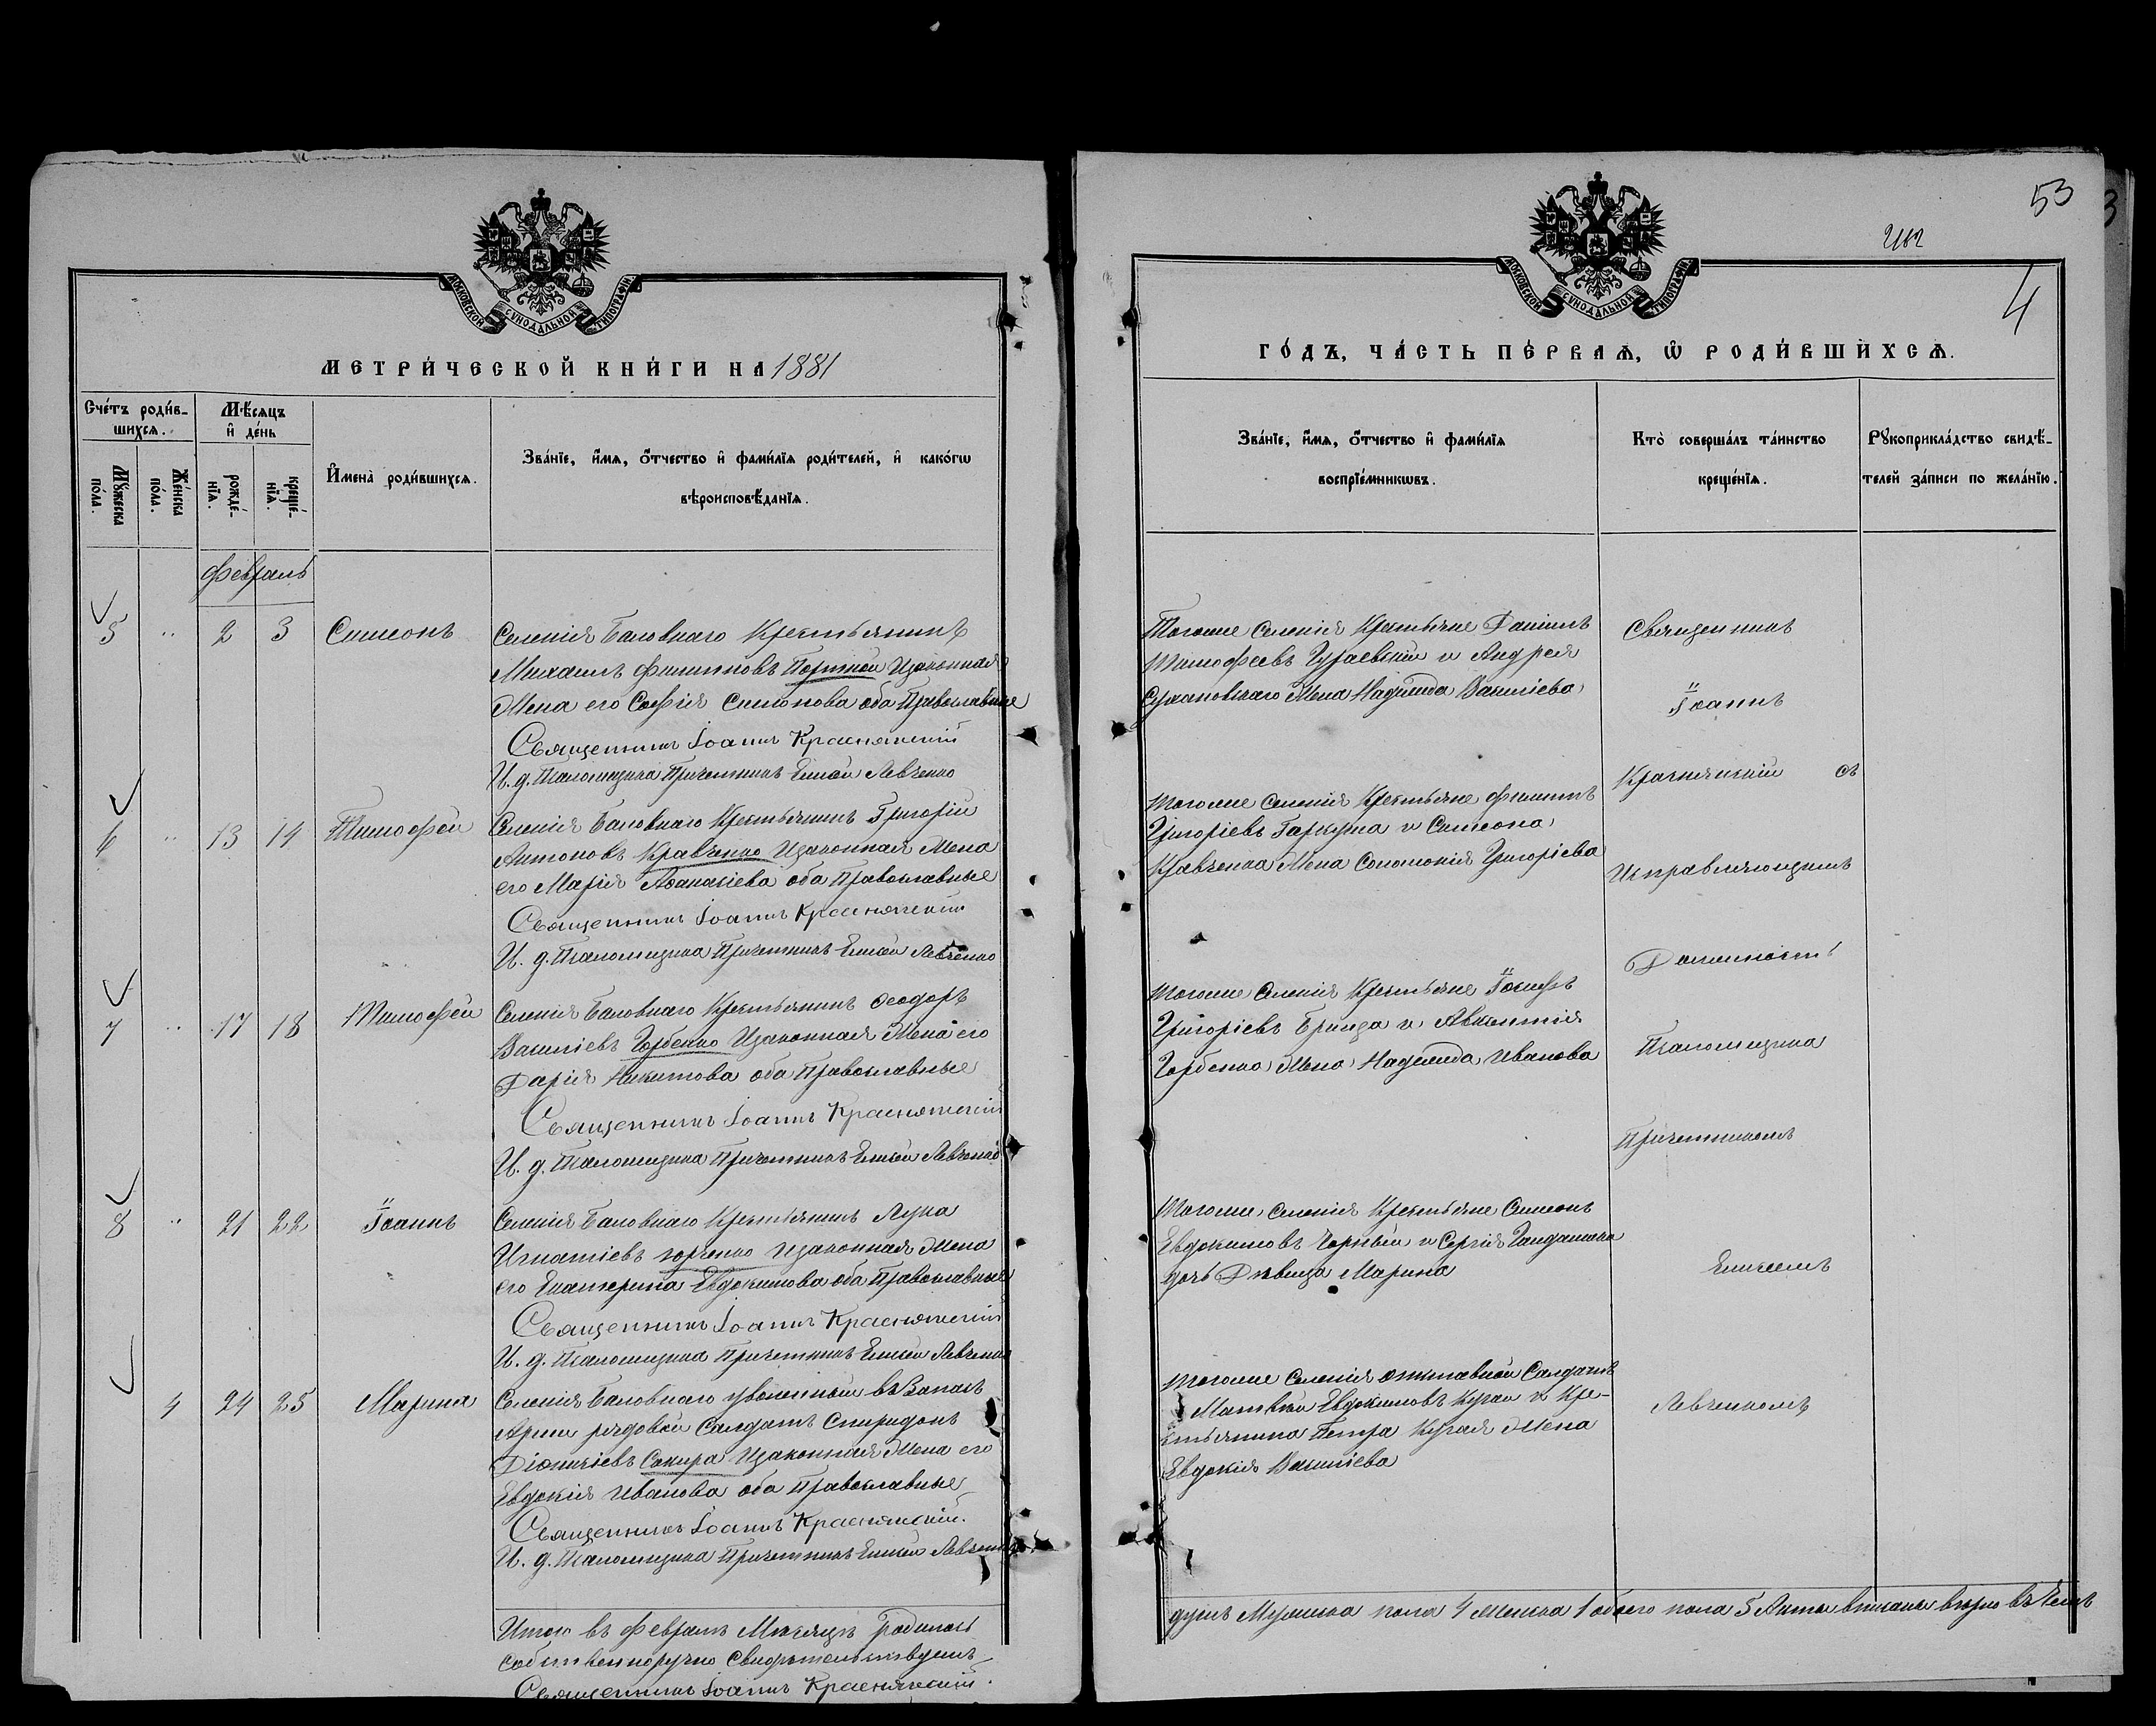 МОСКОВСКОЙ СѴНОДАЛЬНОЙ ТИПОГРАФІИ.
МЕТРИ́ЧЕСКОЙ КНИ́ГИ НА 1881
Сче́тъ роди́в-
шихсѧ.
Мѣ́сѧцъ
и҆ де́нь
Мꙋ́жеска
по́ла.
Же́нска
по́ла.
рожде́-
нїѧ.
креще́-
нїѧ.
И҆мена̀ роди́вшихсѧ.
Зва́нїе, и҆́мѧ, ѻ҆́тчество и҆ фами́лїѧ роди́телей, и҆ како́гѡ
вѣроисповѣ́данїѧ.
Февраль
5 " 2 3 Симеонъ
Селенія Баловнаго Крестьянинъ
Михаилъ Филиповъ Портной Изаконная
Жена его Софія Симонова оба Православные
Священникъ Іоаннъ Краснянскій
И. д. Псаломщика Причетникъ Елисей Левченко
6 " 13 14 Тимофей
Селенія Баловнаго Крестьянинъ Григорій
Антоновъ Кравченко Изаконная Жена
его Марія Аѳанасіева оба Православные
Священникъ Іоаннъ Краснянскій
И. д. Псаломщика Причетникъ Елисей Левченко
7 " 17 18 Тимофей
Селенія Баловнаго Крестьянинъ Ѳеодоръ
Василіевъ Горбенко Изаконная Жена его
Дарія Никитова оба Православные
Священникъ Іоаннъ Краснянскій
И. д. Псаломщика Причетникъ Елисей Левченко
8 " 21 22 Іоаннъ
Селенія Баловнаго Крестьянинъ Лука
Игнатіевъ Юрченко Изаконная Жена
его Екатерина Евдокимова оба Православные
Священникъ Іоаннъ Краснянскій
И. д. Псаломщика Причетникъ Елисей Левченко
4 24 25 Марина
Селенія Баловнаго уволенный въ Запасъ
Арміи рядовой Салдатъ Спиридонъ
Діонисіевъ Сокира Изаконная Жена его
Евдокія Иванова оба Православные
Священникъ Іоаннъ Краснянскій.
И. д. Псаломщика Причетникъ Елисей Левченко
Итого въ Февралѣ Мѣсяцѣ Родилось
собственноручно Свидѣтельствуемъ
Священникъ Іоаннъ Краснянскій.
53
4
МОСКОВСКОЙ СѴНОДАЛЬНОЙ ТИПОГРАФІИ.
ГО́ДЪ, ЧА́СТЬ ПЕ́РВАѦ, Ѡ҆ РОДИ́ВШИХСѦ.
Зва́нїе, и҆́мѧ, ѻ҆́тчество и҆ фами́лїѧ
воспрїе́мникѡвъ.
Кто̀ соверша́лъ та́инство
креще́нїѧ.
Рꙋкоприкла́дство свидѣ́-
телей за́писи по жела́нїю.
Тогоже Селенія Крестьяне Даніилъ
Тимофеевъ Гураевскій и Андрея
Сухановскаго Жена Надежда Василіева
Тогоже Селенія Крестьяне Филиппъ
Григоріевъ Гаркуша и Симеона
Кравченка Жена Соломонія Григоріева
Тогоже Селенія Крестьяне Іосифъ
Григоріевъ Бринза и Авксентія
Горбенко Жена Надежда Иванова
Тогоже Селенія Крестьяне Симеонъ
Евдокимовъ Чорный и Сергія Гайдашова
дочь Дѣвица Марина
Тогоже Селенія отставной Салдатъ
Матвѣй Евдокимовъ Кугай и Кре-
стьянина Петра Кугая Жена
Евдокія Василіева
Священникъ
Іоаннъ
Краснянскій съ
Исправляющимъ
Должность
Псаломщика
Причетникомъ
Елисеемъ
Левченкомъ
душъ Мужеска пола 4 Женска 1 обоего пола 5 Акты вписаны вѣрно въ чемъ